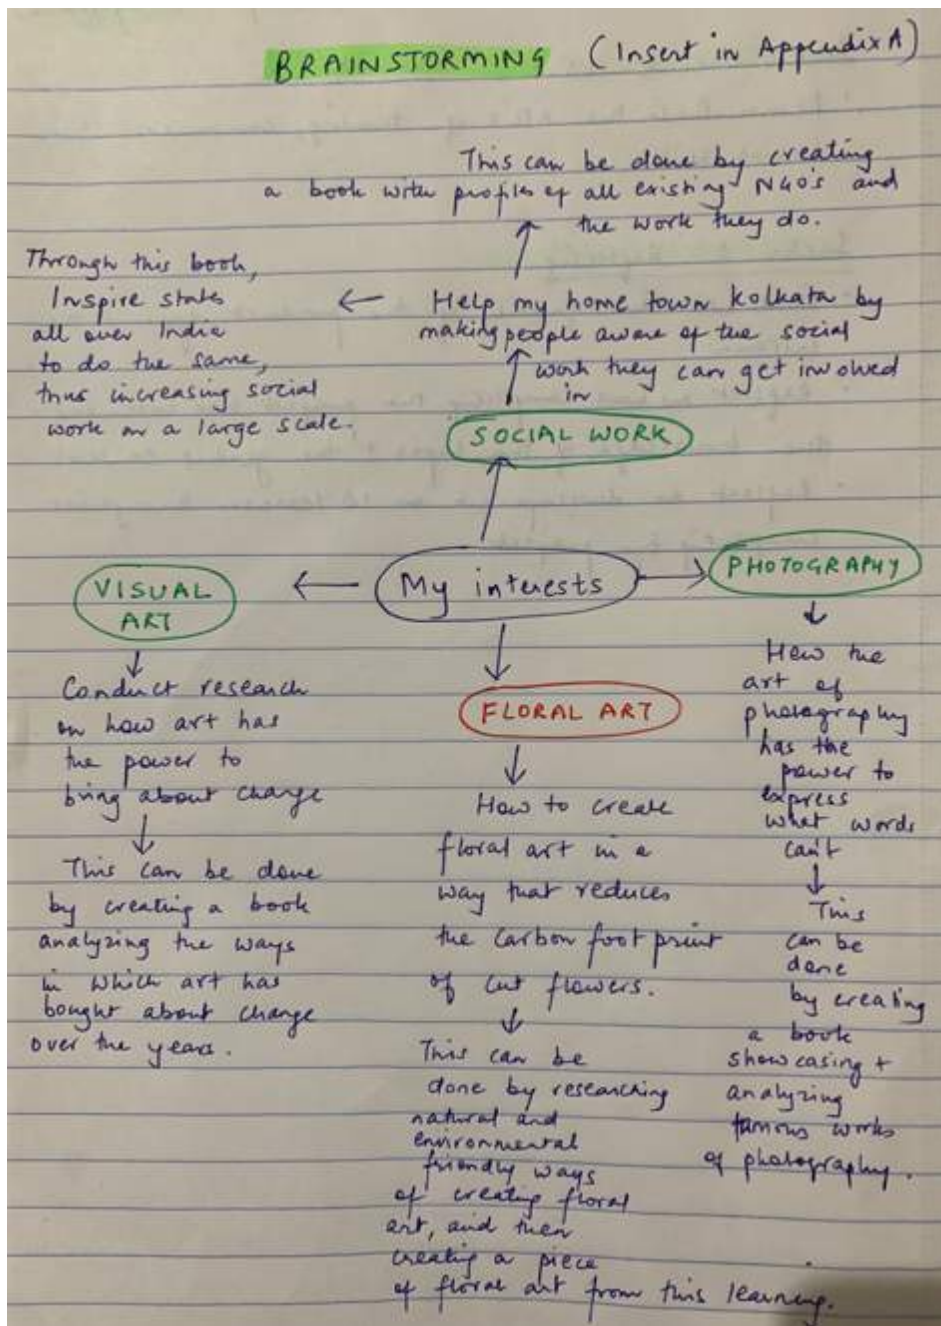 BRAINSTORMING (Insert in Appendix A)
This can be done by creating
a book with profiles of all existing NGO's and
the work they do.
Through this book,
Inspire states
all over India
to do the same,
thus increasing social
work on a large scale.
Help my home town Kolkata by
making people aware of the social
work they can get involved
in
SOCIAL WORK
My interests
VISUAL
ART
Conduct research
on how art has
the power to
bring about change
This can be done
by creating a book
analyzing the ways
in which art has
bought about change
over the years.
FLORAL ART
How to create
floral art in a
way that reduces
the carbon foot print
of cut flowers.
This can be
done by researching
natural and
environmental
friendly ways
of creating floral
art, and then
creating a piece
of floral art from this learning.
PHOTOGRAPHY
How the
art of
photography
has the
power to
express
what words
can't
This
can be
done
by creating
a book
showcasing +
analyzing
famous works
of photography.